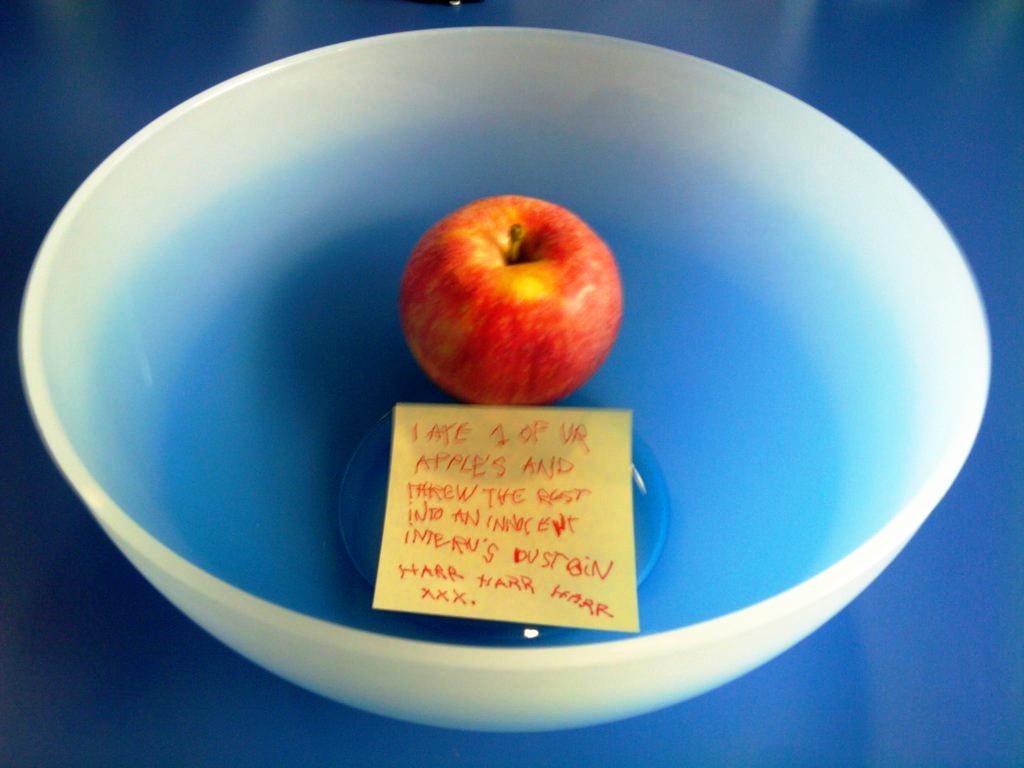 I ATE 1 OF UR
APPLE'S AND
THREW THE REST
INTO AN INNOCENT
INTERN'S DUSTBIN
HARR HARR HARR
XXX.